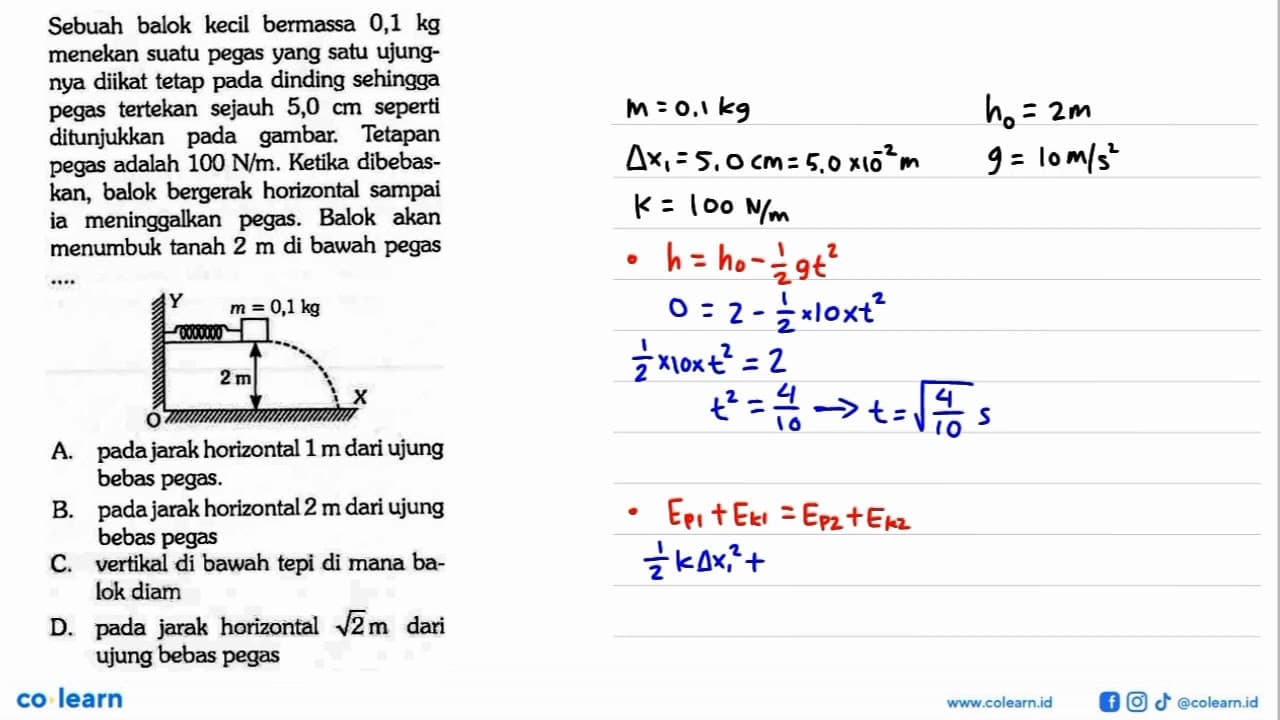 Sebuah balok kecil bermassa 0,1 kg
menekan suatu pegas yang satu ujung-
nya diikat tetap pada dinding sehingga
pegas tertekan sejauh 5,0 cm seperti
ditunjukkan pada gambar. Tetapan
pegas adalah 100 N/m. Ketika dibebas-
kan, balok bergerak horizontal sampai
ia meninggalkan pegas. Balok akan
menumbuk tanah 2 m di bawah pegas
....
Y
m = 0,1 kg
2 m
X
O
A. pada jarak horizontal 1 m dari ujung
bebas pegas.
B. pada jarak horizontal 2 m dari ujung
bebas pegas
C. vertikal di bawah tepi di mana ba-
lok diam
D. pada jarak horizontal √2 m dari
ujung bebas pegas
m = 0.1 kg
h₀ = 2m
Δx₁ = 5.0 cm = 5.0 × 10⁻² m
g = 10 m/s²
k = 100 N/m
• h = h₀ - 1/2 gt²
0 = 2 - 1/2 × 10 × t²
1/2 × 10 × t² = 2
t² = 4/10 → t = √(4/10) s
• Ep1 + Ek1 = Ep2 + Ek2
1/2 k Δx₁² +
co learn
www.colearn.id
@colearn.id